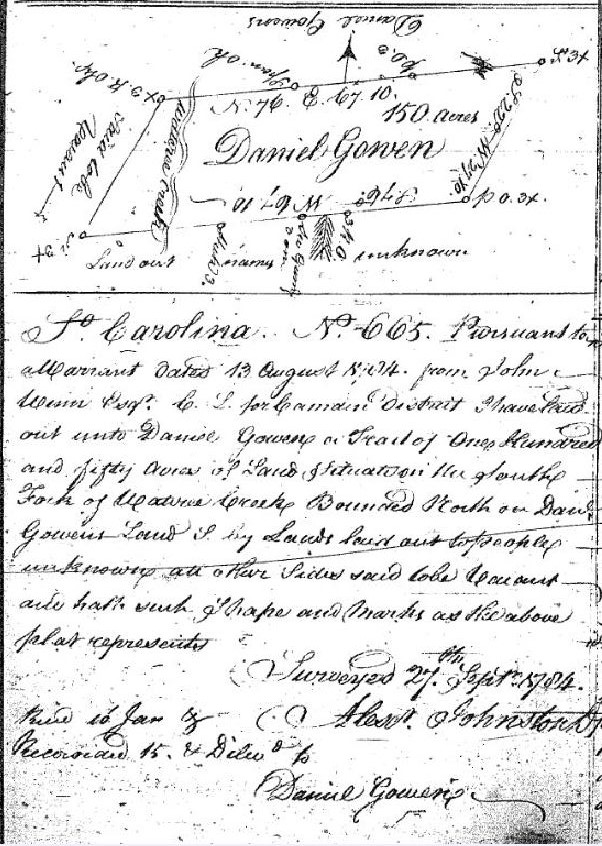 Daniel Gowens
Span. Ok
R.O.3
N. 76. E. 67. 10.
150 Acres
Daniel Gowen
said to be
Vacant
Wateree Creek
W 67 10
S 46
p.o. 3x.
Land out names unknown
So. Carolina. No. 665. Pursuant to
a Warrant dated 13 August 1784. from John
Winn Esqr. C. L. for Camden District I have laid
out unto Daniel Gowen a Tract of One Hundred
and fifty Acres of Land Situate on the South
Fork of Wateree Creek Bounded North on Danl.
Gowens Land S. by Lands laid out to people
unknown all other Sides said to be Vacant
and hath such Shape and Marks as the above
plat represents
Surveyed 27th. Septr. 1784.
16 Jan &
Alexr. Johnston
Recorded 15. & Delivd. to
Daniel Gowen